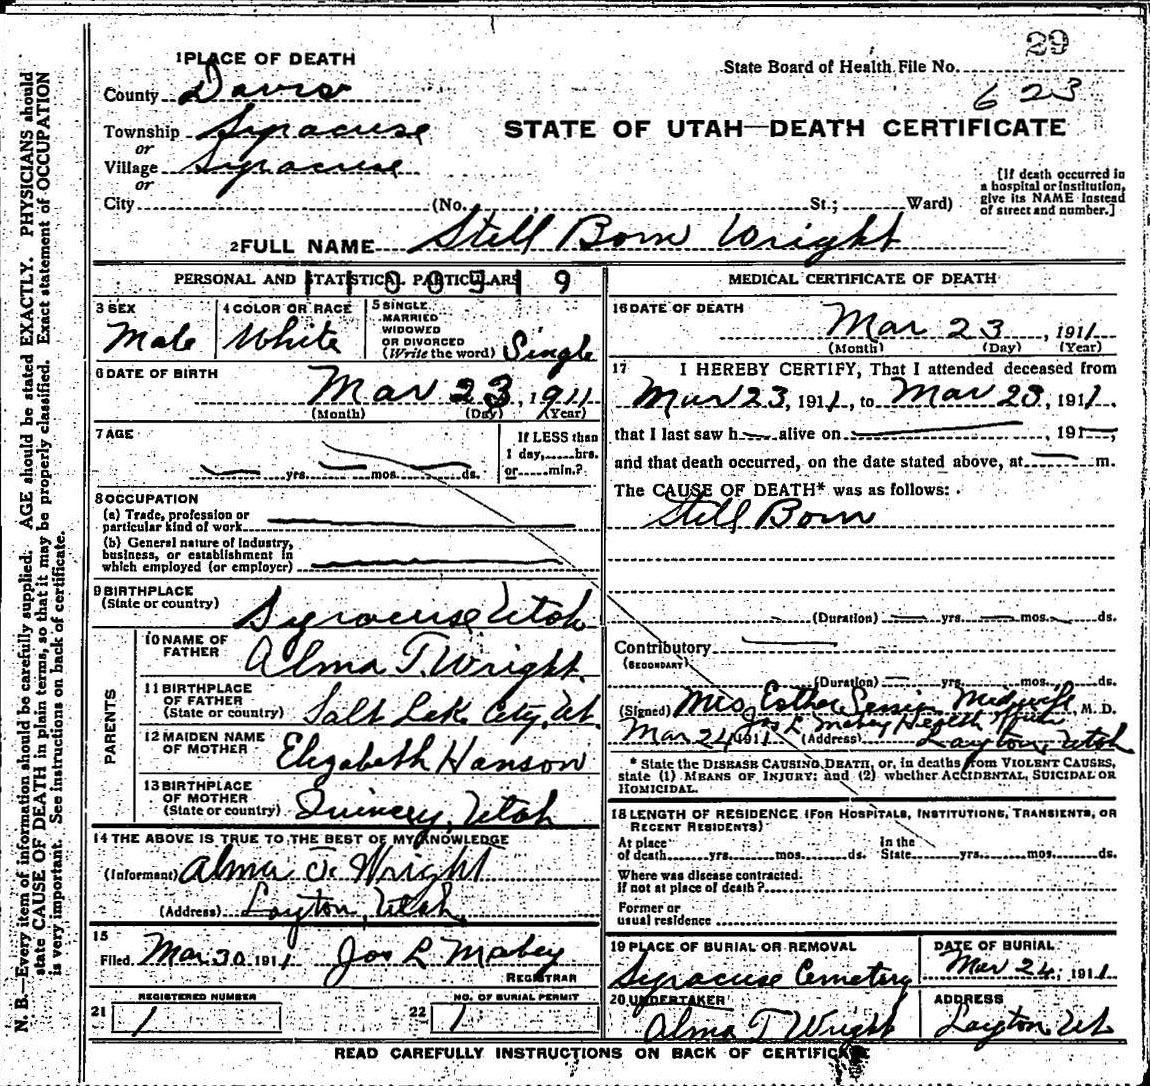 29
State Board of Health File No.
623
1 PLACE OF DEATH
County Davis
Township Syracuse
or
Village Syracuse
or
City (No. St.; Ward)
STATE OF UTAH—DEATH CERTIFICATE
[If death occurred in
a hospital or institution,
give its NAME instead
of street and number.]
2 FULL NAME Still Born Wright
PERSONAL AND STATISTICAL PARTICULARS
3 SEX
Male
4 COLOR OR RACE
White
5 SINGLE
MARRIED
WIDOWED
OR DIVORCED
(Write the word) Single
6 DATE OF BIRTH
Mar 23, 1911
(Month) (Day) (Year)
7 AGE
yrs. mos. ds.
If LESS than
1 day, hrs.
or min.?
8 OCCUPATION
(a) Trade, profession or
particular kind of work
(b) General nature of industry,
business, or establishment in
which employed (or employer)
9 BIRTHPLACE
(State or country)
Syracuse Utah
PARENTS
10 NAME OF
FATHER
Alma T. Wright.
11 BIRTHPLACE
OF FATHER
(State or country) Salt Lake City, Ut.
12 MAIDEN NAME
OF MOTHER
Elizabeth Hanson
13 BIRTHPLACE
OF MOTHER
(State or country) Utah
14 THE ABOVE IS TRUE TO THE BEST OF MY KNOWLEDGE
(Informant) Alma T. Wright
(Address) Layton, Utah.
15
Filed Mar 30 1911 Jos L Mabey
REGISTRAR
21 REGISTERED NUMBER
1
22 NO. OF BURIAL PERMIT
1
MEDICAL CERTIFICATE OF DEATH
16 DATE OF DEATH
Mar 23, 1911
(Month) (Day) (Year)
17 I HEREBY CERTIFY, That I attended deceased from
Mar 23, 1911, to Mar 23, 1911.
that I last saw h alive on , 191
and that death occurred, on the date stated above, at m.
The CAUSE OF DEATH* was as follows:
Still Born
(Duration) yrs. mos. ds.
Contributory
(SECONDARY)
(Duration) yrs. mos. ds.
(Signed) Mrs Esther Midwife, M. D.
Jos L Mabey Health
Mar 24, 1911 (Address) Layton, Utah
* State the DISEASE CAUSING DEATH, or, in deaths from VIOLENT CAUSES,
state (1) MEANS OF INJURY; and (2) whether ACCIDENTAL, SUICIDAL OR
HOMICIDAL.
18 LENGTH OF RESIDENCE (FOR HOSPITALS, INSTITUTIONS, TRANSIENTS, OR
RECENT RESIDENTS)
At place In the
of death yrs. mos. ds. State yrs. mos. ds.
Where was disease contracted.
if not at place of death?
Former or
usual residence
19 PLACE OF BURIAL OR REMOVAL
Syracuse Cemetery
DATE OF BURIAL
Mar 24, 1911
20 UNDERTAKER
Alma T Wright
ADDRESS
Layton, Ut
READ CAREFULLY INSTRUCTIONS ON BACK OF CERTIFICATE
N. B.—Every item of information should be carefully supplied. AGE should be stated EXACTLY. PHYSICIANS should
state CAUSE OF DEATH in plain terms, so that it may be properly classified. Exact statement of OCCUPATION
is very important. See instructions on back of certificate.